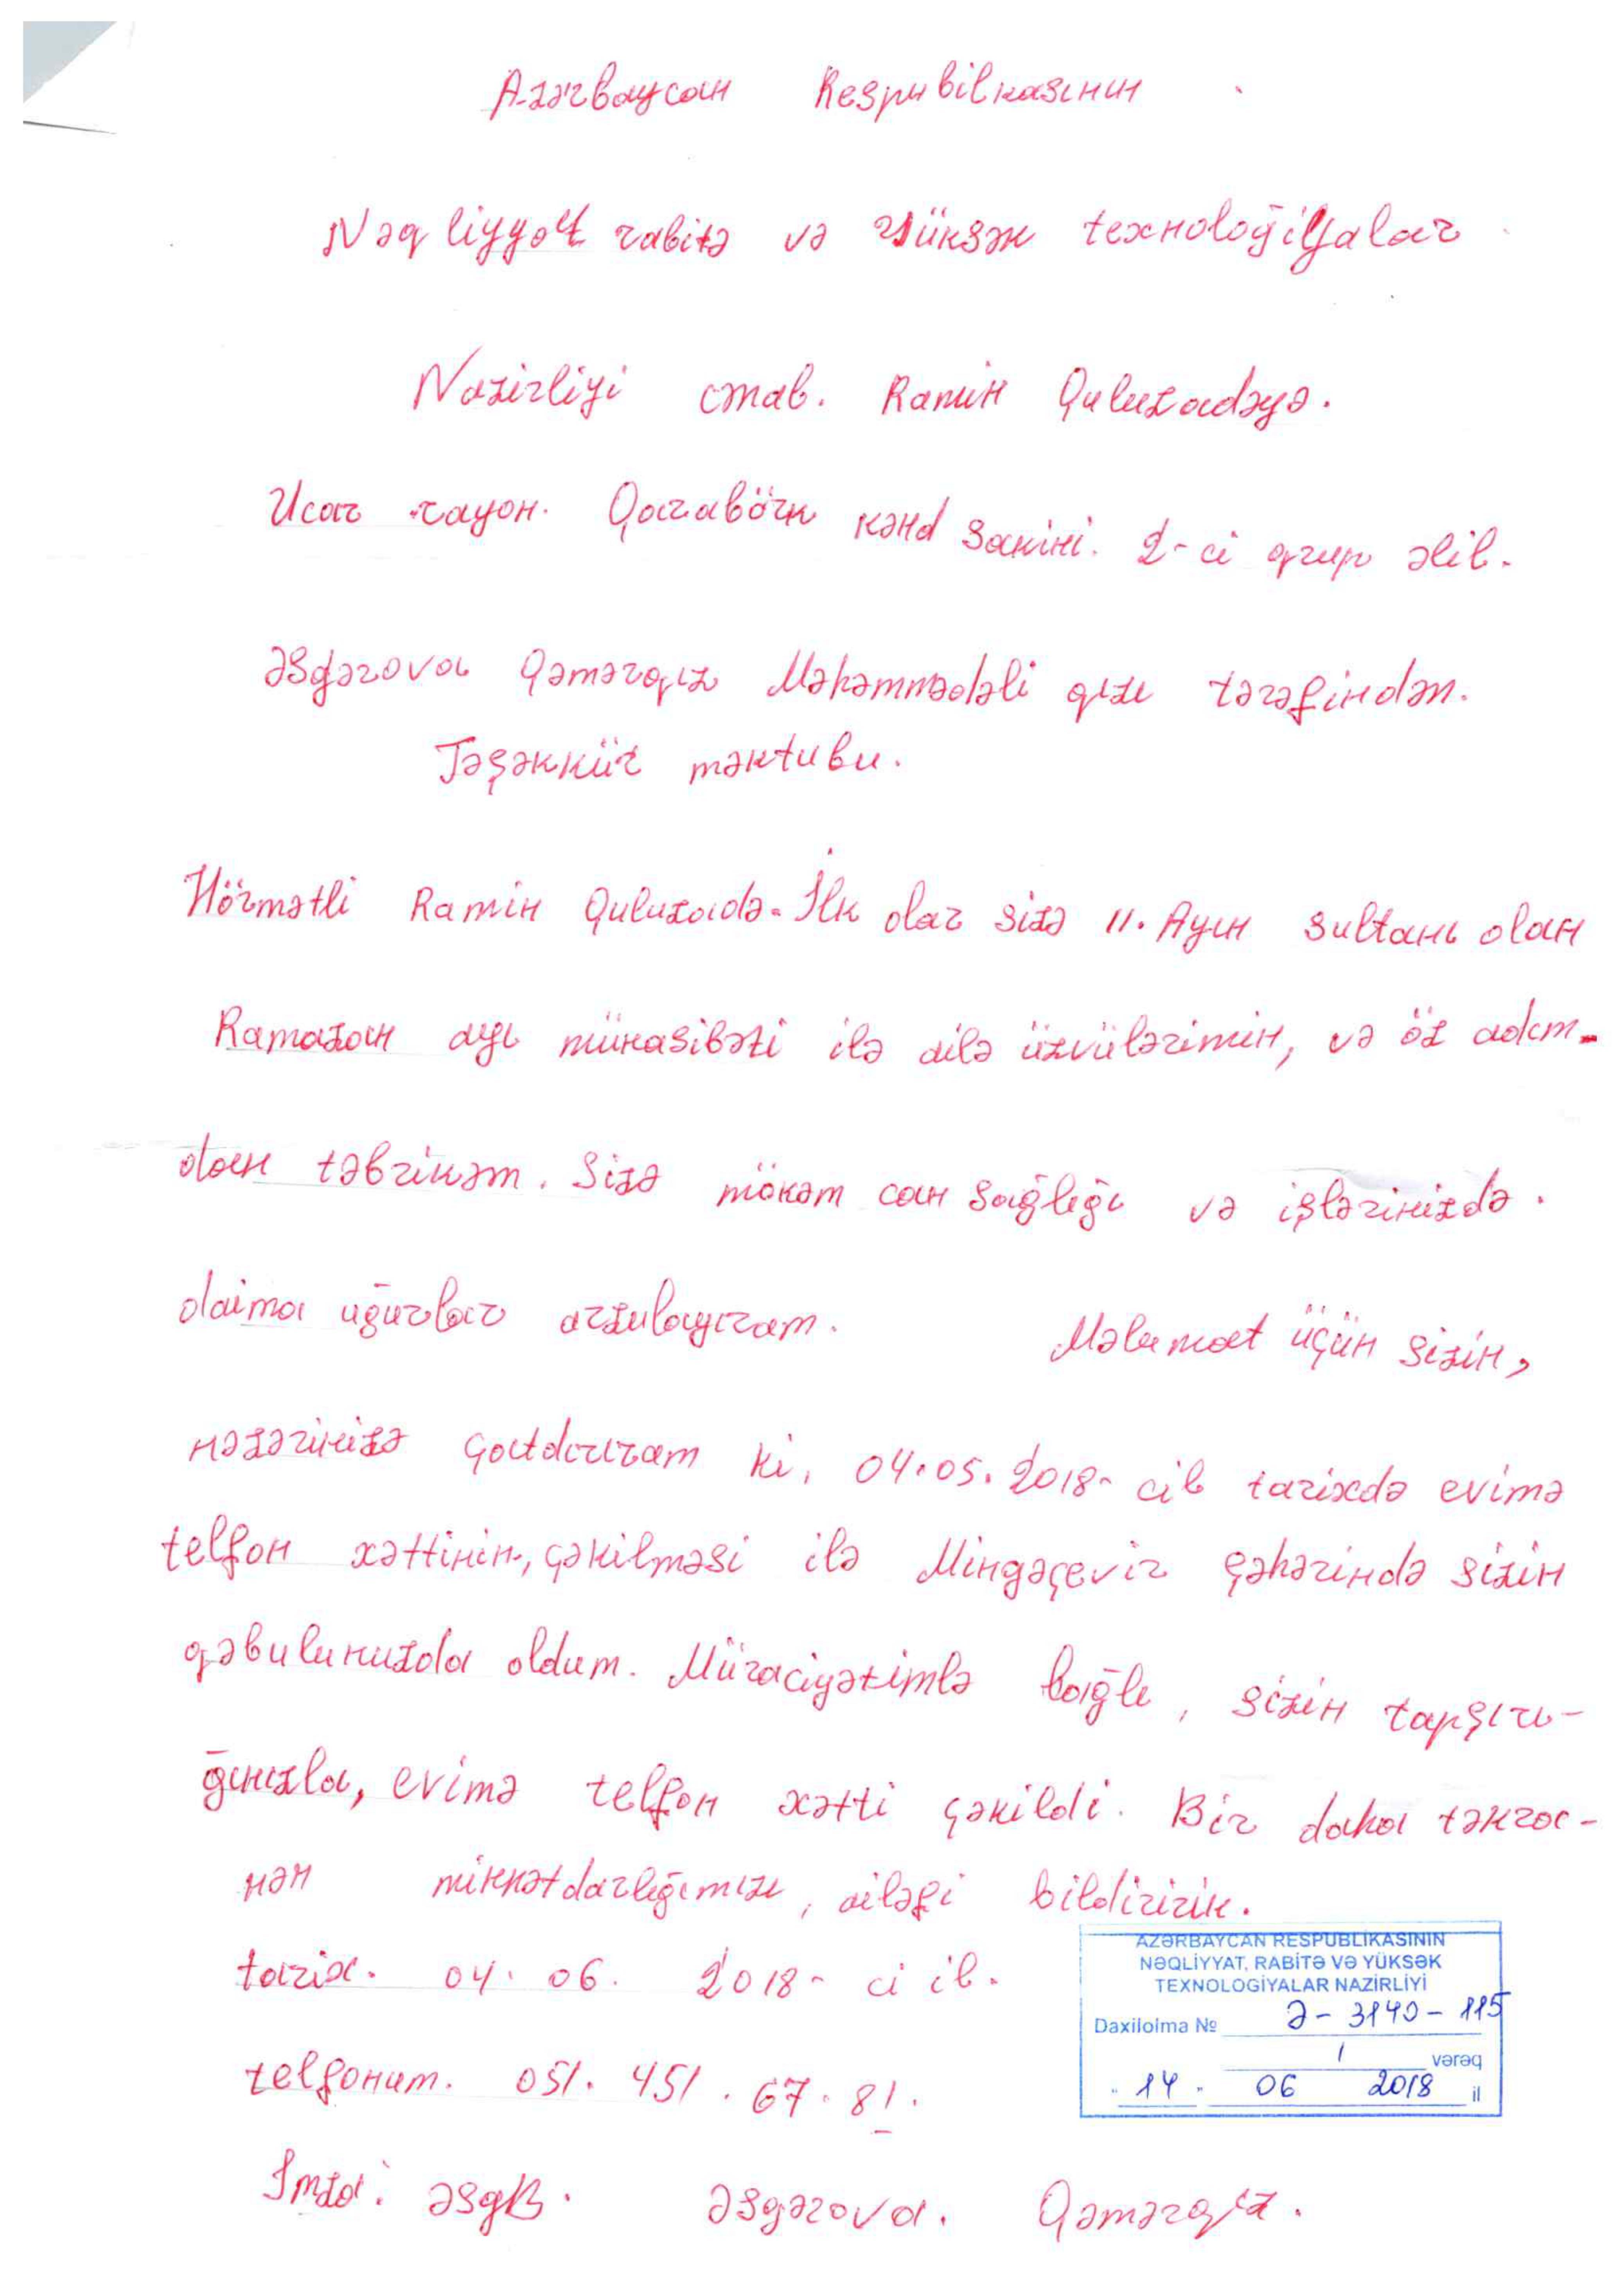 Azərbaycan Respubilkasının
Nəqliyyat rabitə və Yüksək texnoloğiyalar
Nazirliyi cənab. Ramin Quluzadəyə.
Ucar rayon. Qarabörk kənd sakini. 2-ci qrup əlil.
Əsgərova Qəmərqız Məhəmmədəli qızı tərəfindən.
Təşəkkür məktubu.
Hörmətli Ramin Quluzadə. İlk olar sizə 11. Ayın sultanı olan
Ramazan ayı münasibəti ilə ailə üzvülərimin, və öz adım-
dan təbrikəm. Sizə mökəm can sağlığı və işlərinizdə.
daima uğurlar arzulayıram. Məlumat üçün sizin,
nəzərinizə çatdırıram ki, 04.05.2018-cil tarixdə evimə
telfon xəttinin, çəkilməsi ilə Mingəçevir şəhərində sizin
qəbulunuzda oldum. Müraciyətimlə bağlı, sizin tapşırı-
ğınızla, evimə telfon xətti çəkildi. Bir daha təkrar-
nən minnətdarlığımızı, ailəfi bildiririk.
tarix. 04. 06. 2018-ci il.
AZƏRBAYCAN RESPUBLİKASININ
NƏQLİYYAT, RABİTƏ VƏ YÜKSƏK
TEXNOLOGİYALAR NAZİRLİYİ
Daxilolma № Ə-3140-115
1 vərəq
"14" 06 2018 il
telfonum. 051. 451. 67. 81.
İmza: ƏsgB. Əsgərova. Qəmərqız.